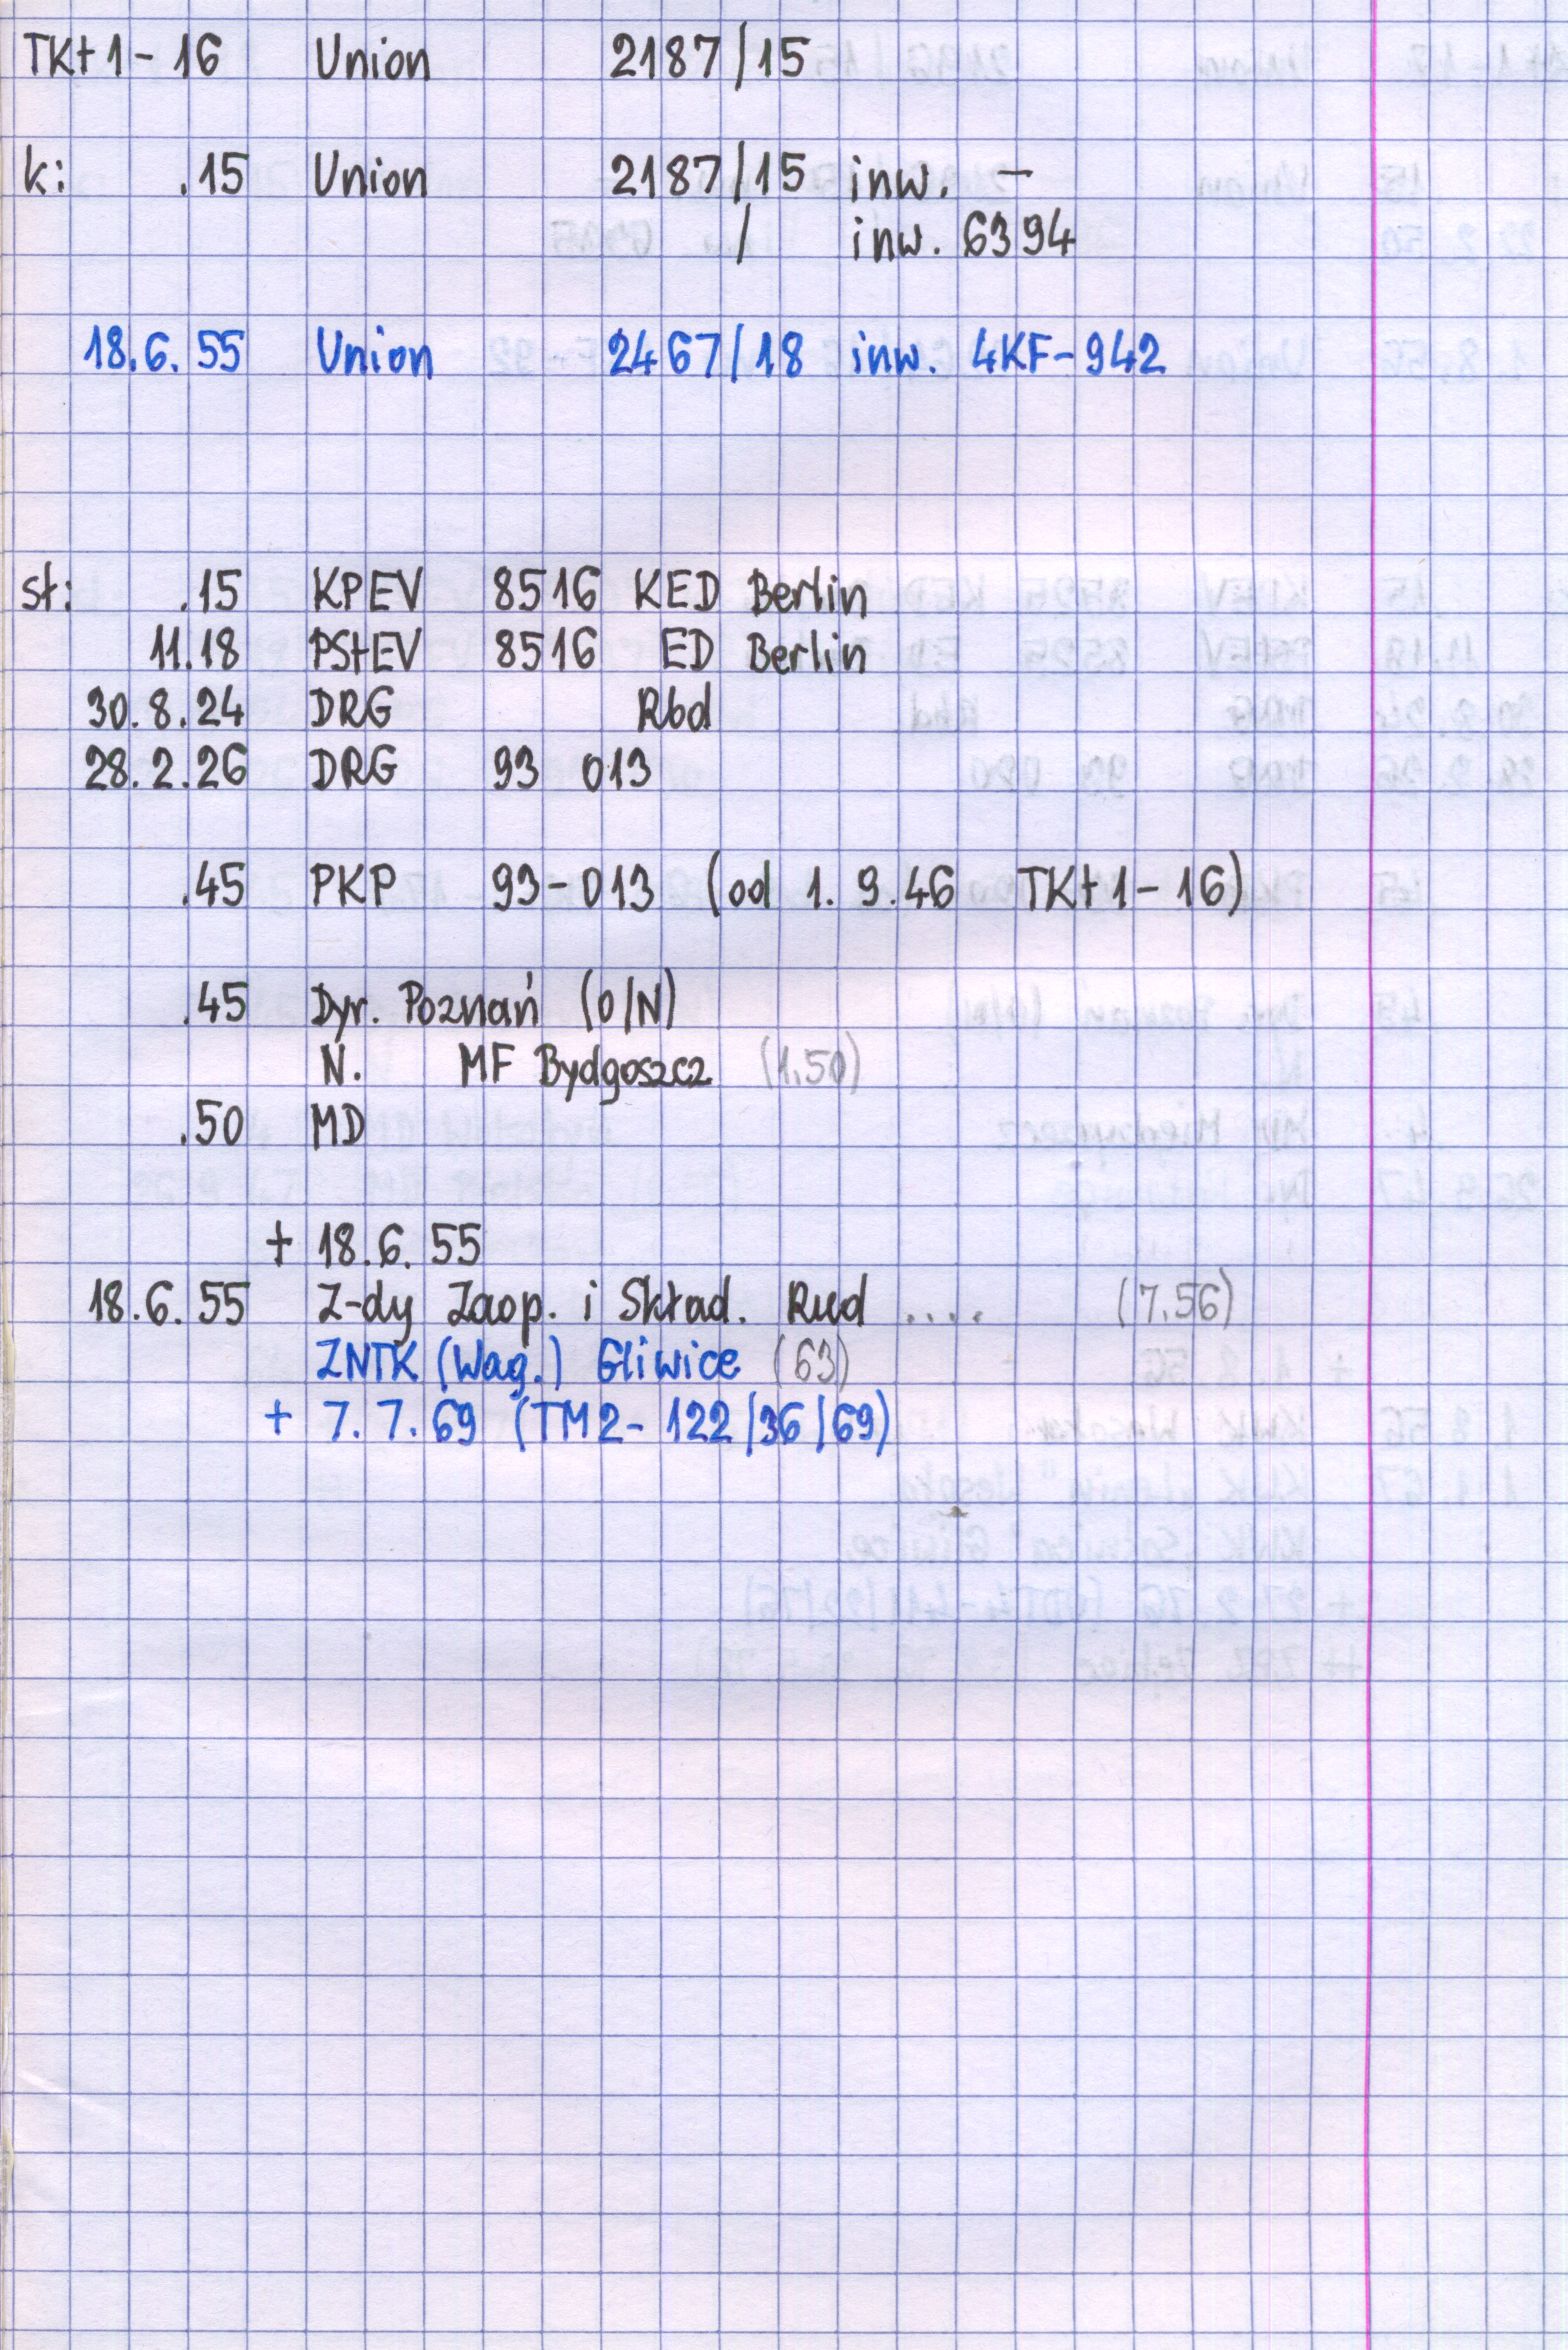 TKt1-16 Union 2187/15
k: .15 Union 2187/15 inw. -
/ inw. 6394
18.6.55 Union 2467/18 inw. 4KF-942
st: .15 KPEV 8516 KED Berlin
11.18 PStEV 8516 ED Berlin
30.8.24 DRG Rbd
28.2.26 DRG 93 013
.45 PKP 93-013 (od 1.9.46 TKt1-16)
.45 Dyr. Poznań (O/N)
N. MF Bydgoszcz (1.50)
.50 MD
+ 18.6.55
18.6.55 Z-dy Zaop. i Skład. Rud .... (7.56)
ZNTK (Wag.) Gliwice (63)
+ 7.7.69 (TM2-122/36/69)